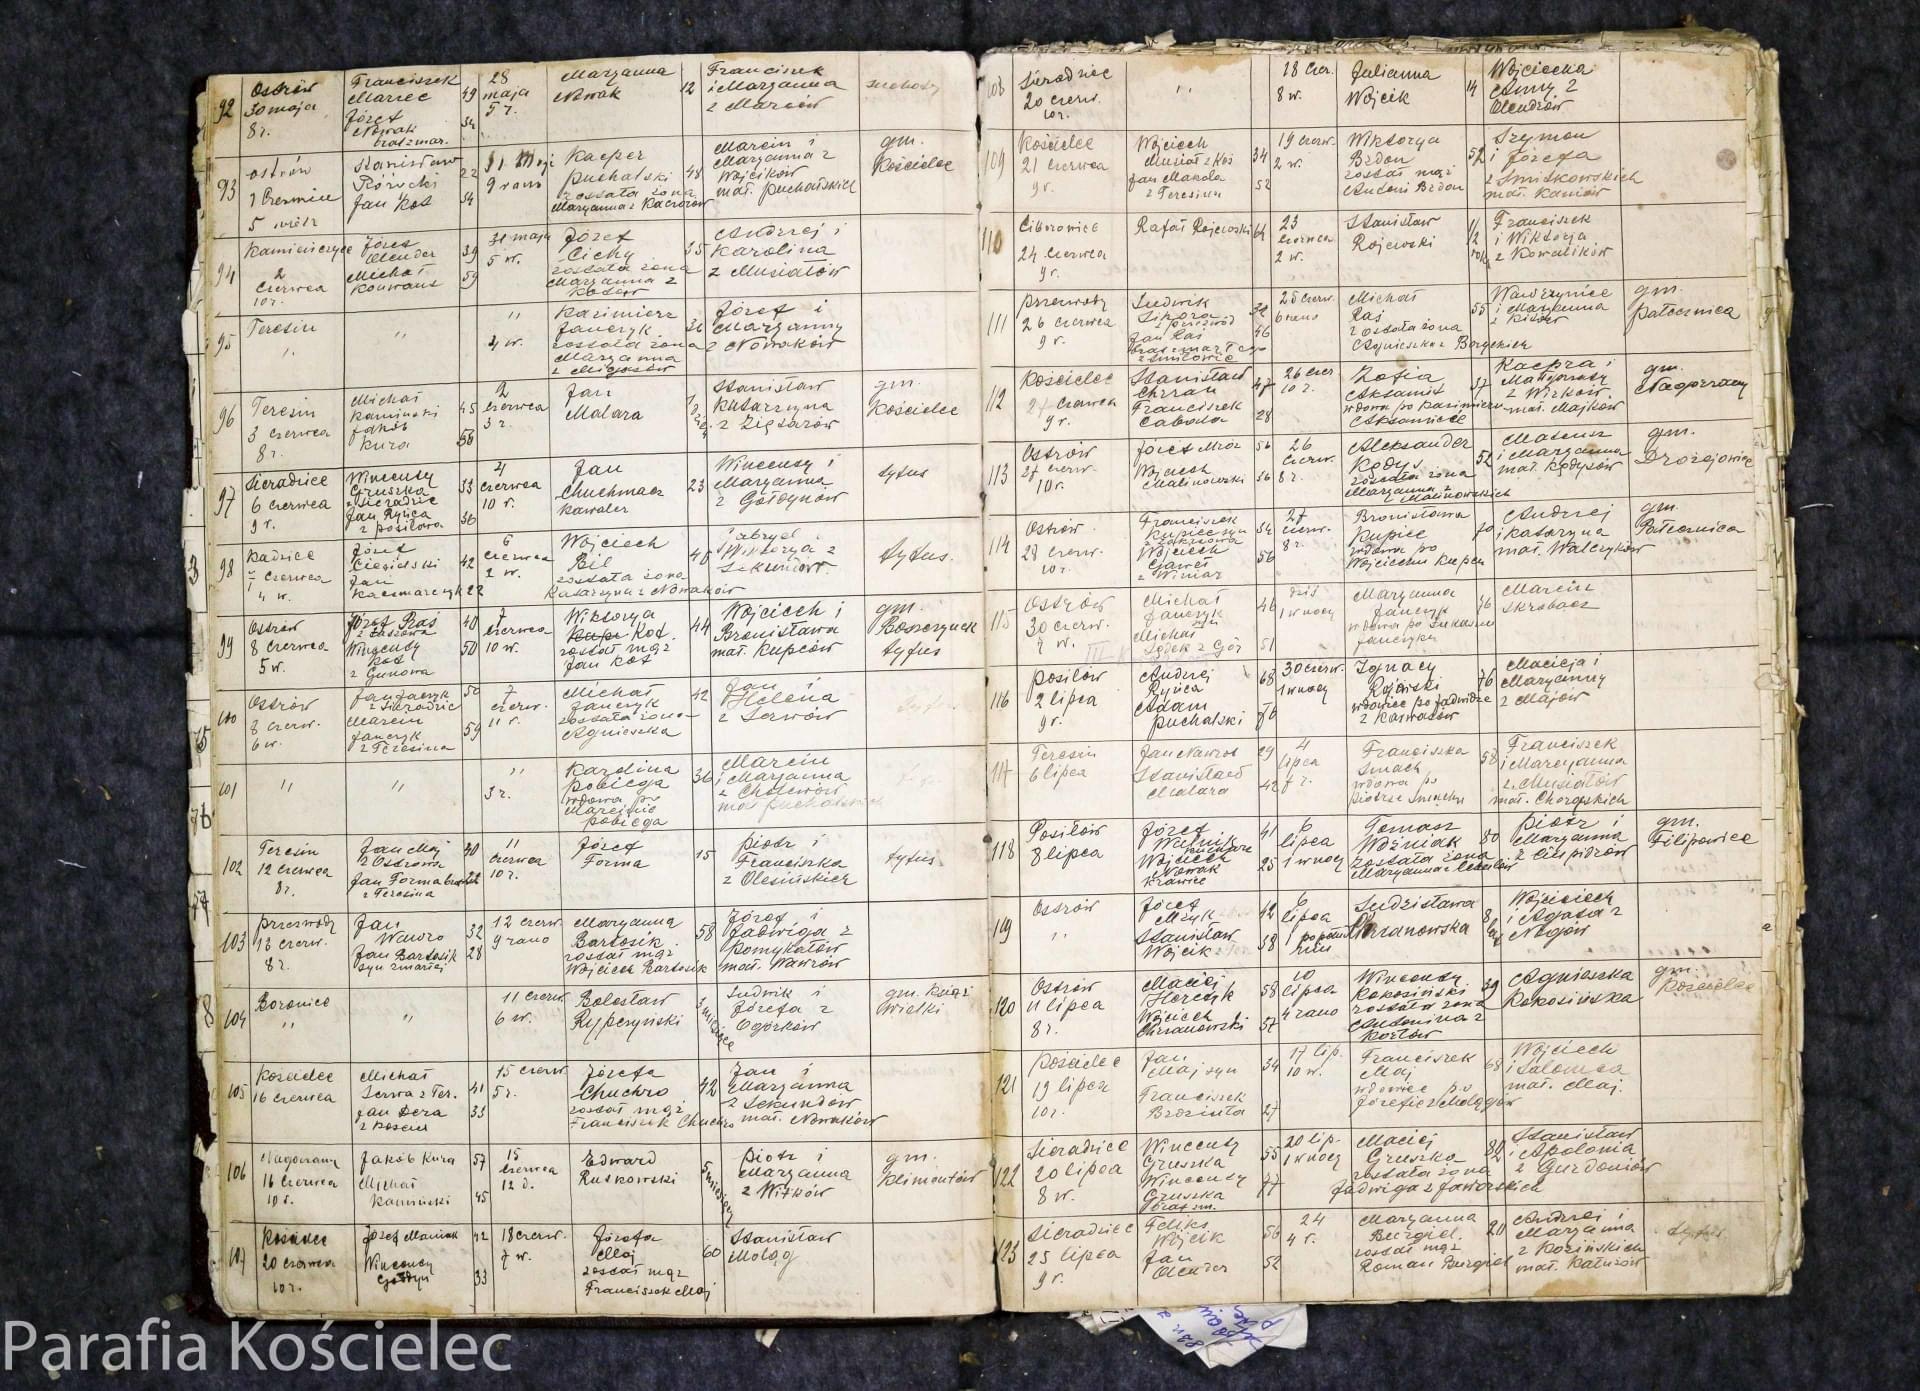 92
Ostrów
30 maja
8 r.
Franciszek
Marzec 49
Józef
Nowak 34
brat zmar.
28
maja
5 r.
Maryanna
Nowak
12
Franciszek
i Maryanna
z Marców
suchoty
93
Ostrów
1 Czerwiec
5 wiecz
Stanisław
Różycki 22
Jan Kot 54
9 rano
Kacper
Puchalski
została żona
Maryanna z Kaczorów
48
Marcin i
Maryanna z
Wójcików
mał. Puchalskich
gm.
Kościelec
94
Kamieńczyce
2
czerwca
10 r.
Józef
Olender 39
Michał 59
31 maja
5 w.
Józef
Cichy
została żona
Maryanna z
Kotów
35
Andrzej i
Karolina
z Musiałów
95
Teresin
"
"
"
4 w.
Kazimierz
Janczyk
została żona
Maryanna
z Migasów
Józef i
Maryanny
z Nowaków
96
Teresin
3 czerwca
8 r.
Michał
Kamiński 45
Jakób
Kura 58
2
czerwca
3 r.
Jan
Malara
Stanisław
Katarzyna
z Ziętarów
gm.
Kościelec
97
Sieradzice
6 czerwca
9 r.
Wincenty
Gruszka 53
z Sieradzic
Jan Ryńca
z Posiłowa 36
4
czerwca
10 r.
Jan
Chuchmacz
kawaler
23
Wincenty i
Maryanna
z Gołdynów
tyfus
98
Kadzice
7 czerwca
4 w.
Józef
Ciesielski 42
Jan
Kaczmarczyk 22
6
czerwca
2 w.
Wojciech
Bil
została żona
Katarzyna z Nowaków
46
Gabryel
Wiktorya z
Sekundów
tyfus.
99
Ostrów
8 czerwca
5 w.
Józef Raś 40
Wincenty
Kot 50
z Gunowa
7
czerwca
10 w.
Wiktorya
Kot.
został mąż
Jan Kot
44
Wojciech i
Bronisława
mał. Kupców
gm.
Boszczynek
tyfus
100
Ostrów
8 czerw.
6 w.
Jan Janczyk 50
z Sieradzic
Marcin
Janczyk 59
z Teresina
7
czerw.
11 r.
Michał
Janczyk
została żona
Agnieszka
42
Jan i
Helena
z Serwów
101
"
"
"
3 r.
Karolina
Pobiega
wdowa po
Marcinie
Pobiega
36
Marcin
i Maryanna
z Cholewów
mał. Puchalskich
102
Teresin
12 czerwca
8 r.
Jan Maj 40
z Ostrowa
Jan Forma brat 22
z Teresina
11
czerwca
10 r.
Józef
Forma
15
Piotr i
Franciszka
z Olesińskich
tyfus
103
Przezwody
13 czerw.
8 r.
Jan
Wawro 32
Jan Bartosik 28
syn zmarłej
12 czerw.
9 rano
Maryanna
Bartosik
został mąż
Wojciech Bartosik
58
Józef i
Jadwiga z
Pomykałów
mał. Wawrów
104
Boronice
"
"
11 czerw
6 w.
Bolesław
Rypczyński
3 miesiące
Ludwik i
Józefa z
Ogórków
gm. Książ
Wielki
105
Kościelec
16 czerwca
Michał
Serwa z Ter. 41
Jan Dera 33
z Kościel
15 czerw
5 r.
Józefa
Chuchro
został mąż
Franciszek Chuchro
42
Jan i
Maryanna
z Sekundów
mał. Nowaków
106
Nagorzany
16 czerwca
10 r.
Jakób Kura 57
Michał
Kamiński 45
15
czerwca
12 d.
Edward
Rutkowski
5 miesięcy
Piotr i
Maryanna
z Witków
gm.
Klimontów
107
Kościelec
20 czerwca
10 r.
Józef Maniak 42
Wincenty
Gołdyn 33
18 czerw.
7 w.
Józefa
Maj
został mąż
Franciszek Maj
60
Stanisław
Moląg
108
Sieradzice
20 czerw.
10 r.
"
18 czer.
8 w.
Julianna
Wójcik
14
Wojciecha
Anny z
Olendrów
109
Kościelec
21 czerwca
9 r.
Wojciech
Musiał z Koś 34
Jan Makola
z Teresina 52
19 czerw.
2 w.
Wiktorya
Bzdon
został mąż
Antoni Bzdon
52
Szymon
i Józefa
z Smitkowskich
mał. Kaniów
110
Ciborowice
24 czerwca
9 r.
Rafał Rojewski 64
23
czerwca
2 w.
Stanisław
Rojewski
1/2
roku
Franciszek
i Wiktorja
z Kowalików
111
Przezwody
26 czerwca
9 r.
Ludwik
Sikora
z Przezwód
Jan Raś 46
brat zmarłego
z Smiłowic
25 czerw.
6 rano
Michał
Raś
została żona
Agnieszka z Borychich
55
Wawrzyniec
i Maryanna
gm.
Pałecznica
112
Kościelec
27 czerwca
9 r.
Stanisław
Chrzan 47
Franciszek
Cabała 28
26 czer
10 r.
Zofia
Aksamit
wdowa po Kazimierzu
Aksamicie
57
Kacpra i
Małgorzaty
z Wirków.
mał. Majków
gm.
Nagorzany
113
Ostrów
27 czerw.
10 r.
Józef Mróz 56
Wojciech
Malinowski 36
26
czerw.
8 r.
Aleksander
Kędys
została żona
Maryanna z
Malinowskich
52
Mateusz
i Maryanna
mał. Kędysów
gm.
Drożejowice
114
Ostrów
28 czerw.
10 r.
Franciszek
Kupiec syn 34
z Zakrzowa
Wojciech
Gaweł 56
z Winiar
27
czerw.
8 r.
Bronisława
Kupiec
wdowa po
Wojciechu Kupcu
70
Andrzej
i Katarzyna
mał. Walczyków
gm.
Pałecznica
115
Ostrów
30 czerw.
7 w.
Michał
Janczyk 46
syn
Michał
Sojek z Gór 51
dziś
1 w nocy
Maryanna
Janczyk
wdowa po Łukaszu
Janczyku
76
Marcin
Skrobacz
116
Posiłów
2 lipca
9 r.
Andrzej
Ryńca 68
Adam
Puchalski
30 czerw.
1 w nocy
Ignacy
Rojewski
wdowiec po Jadwidze
z Karwatów
76
Macieja i
Maryanny
z Majów
117
Teresin
6 lipca
Jan Nawrot 29
Stanisław
Malara 42
4
lipca
7 r.
Franciszka
Smach
wdowa po
Piotrze Smachu
58
Franciszek
i Maryanna
z Musiałów
mał. Chorąskich
118
Posiłów
8 lipca
Józef
Wolnik 41
Wojciech
Nowak 25
krawiec
6
lipca
1 w nocy
Tomasz
Woźniak
została żona
80
Piotr i
Maryanna
gm.
Filipowice
119
Ostrów
"
Józef
Mzyk 42
Stanisław
Wójcik 58
6
lipca
1 popołud
niu
Ludzisława
Chrzanowska
Wojciech
i Agata z
Nogów
120
Ostrów
11 lipca
8 r.
Maciej
Horczyk 58
Wojciech
Chrzanowski 57
10
lipca
4 rano
Wincenty
Rokosiński
została żona
Antonina z
Kozłów
39
Agnieszka
Rokosińska
gm.
Kościelec
121
Kościelec
19 lipca
10 r.
Jan
Maj syn 34
Franciszek
Brzózka 27
17 lip.
10 w.
Franciszek
Maj
wdowiec po
Józefie z Molągów
68
Wojciech
i Salomea
mał. Maj.
122
Sieradzice
20 lipca
8 w.
Wincenty
Gruszka 55
Wincenty
Gruszka 77
brat zm.
20 lip.
1 w nocy
Maciej
Gruszka
została żona
Jadwiga z Jaworskich
82
Stanisław
i Apolonia
z Gurdoniów
123
Sieradzice
25 lipca
9 r.
Feliks
Wójcik 56
Jan
Olender 52
24
4 r.
Maryanna
Burgiel.
został mąż
Roman Burgiel
20
Andrzej i
Maryanna
z Kozińskich
mał. Katurów
tyfus
Parafia Kościelec